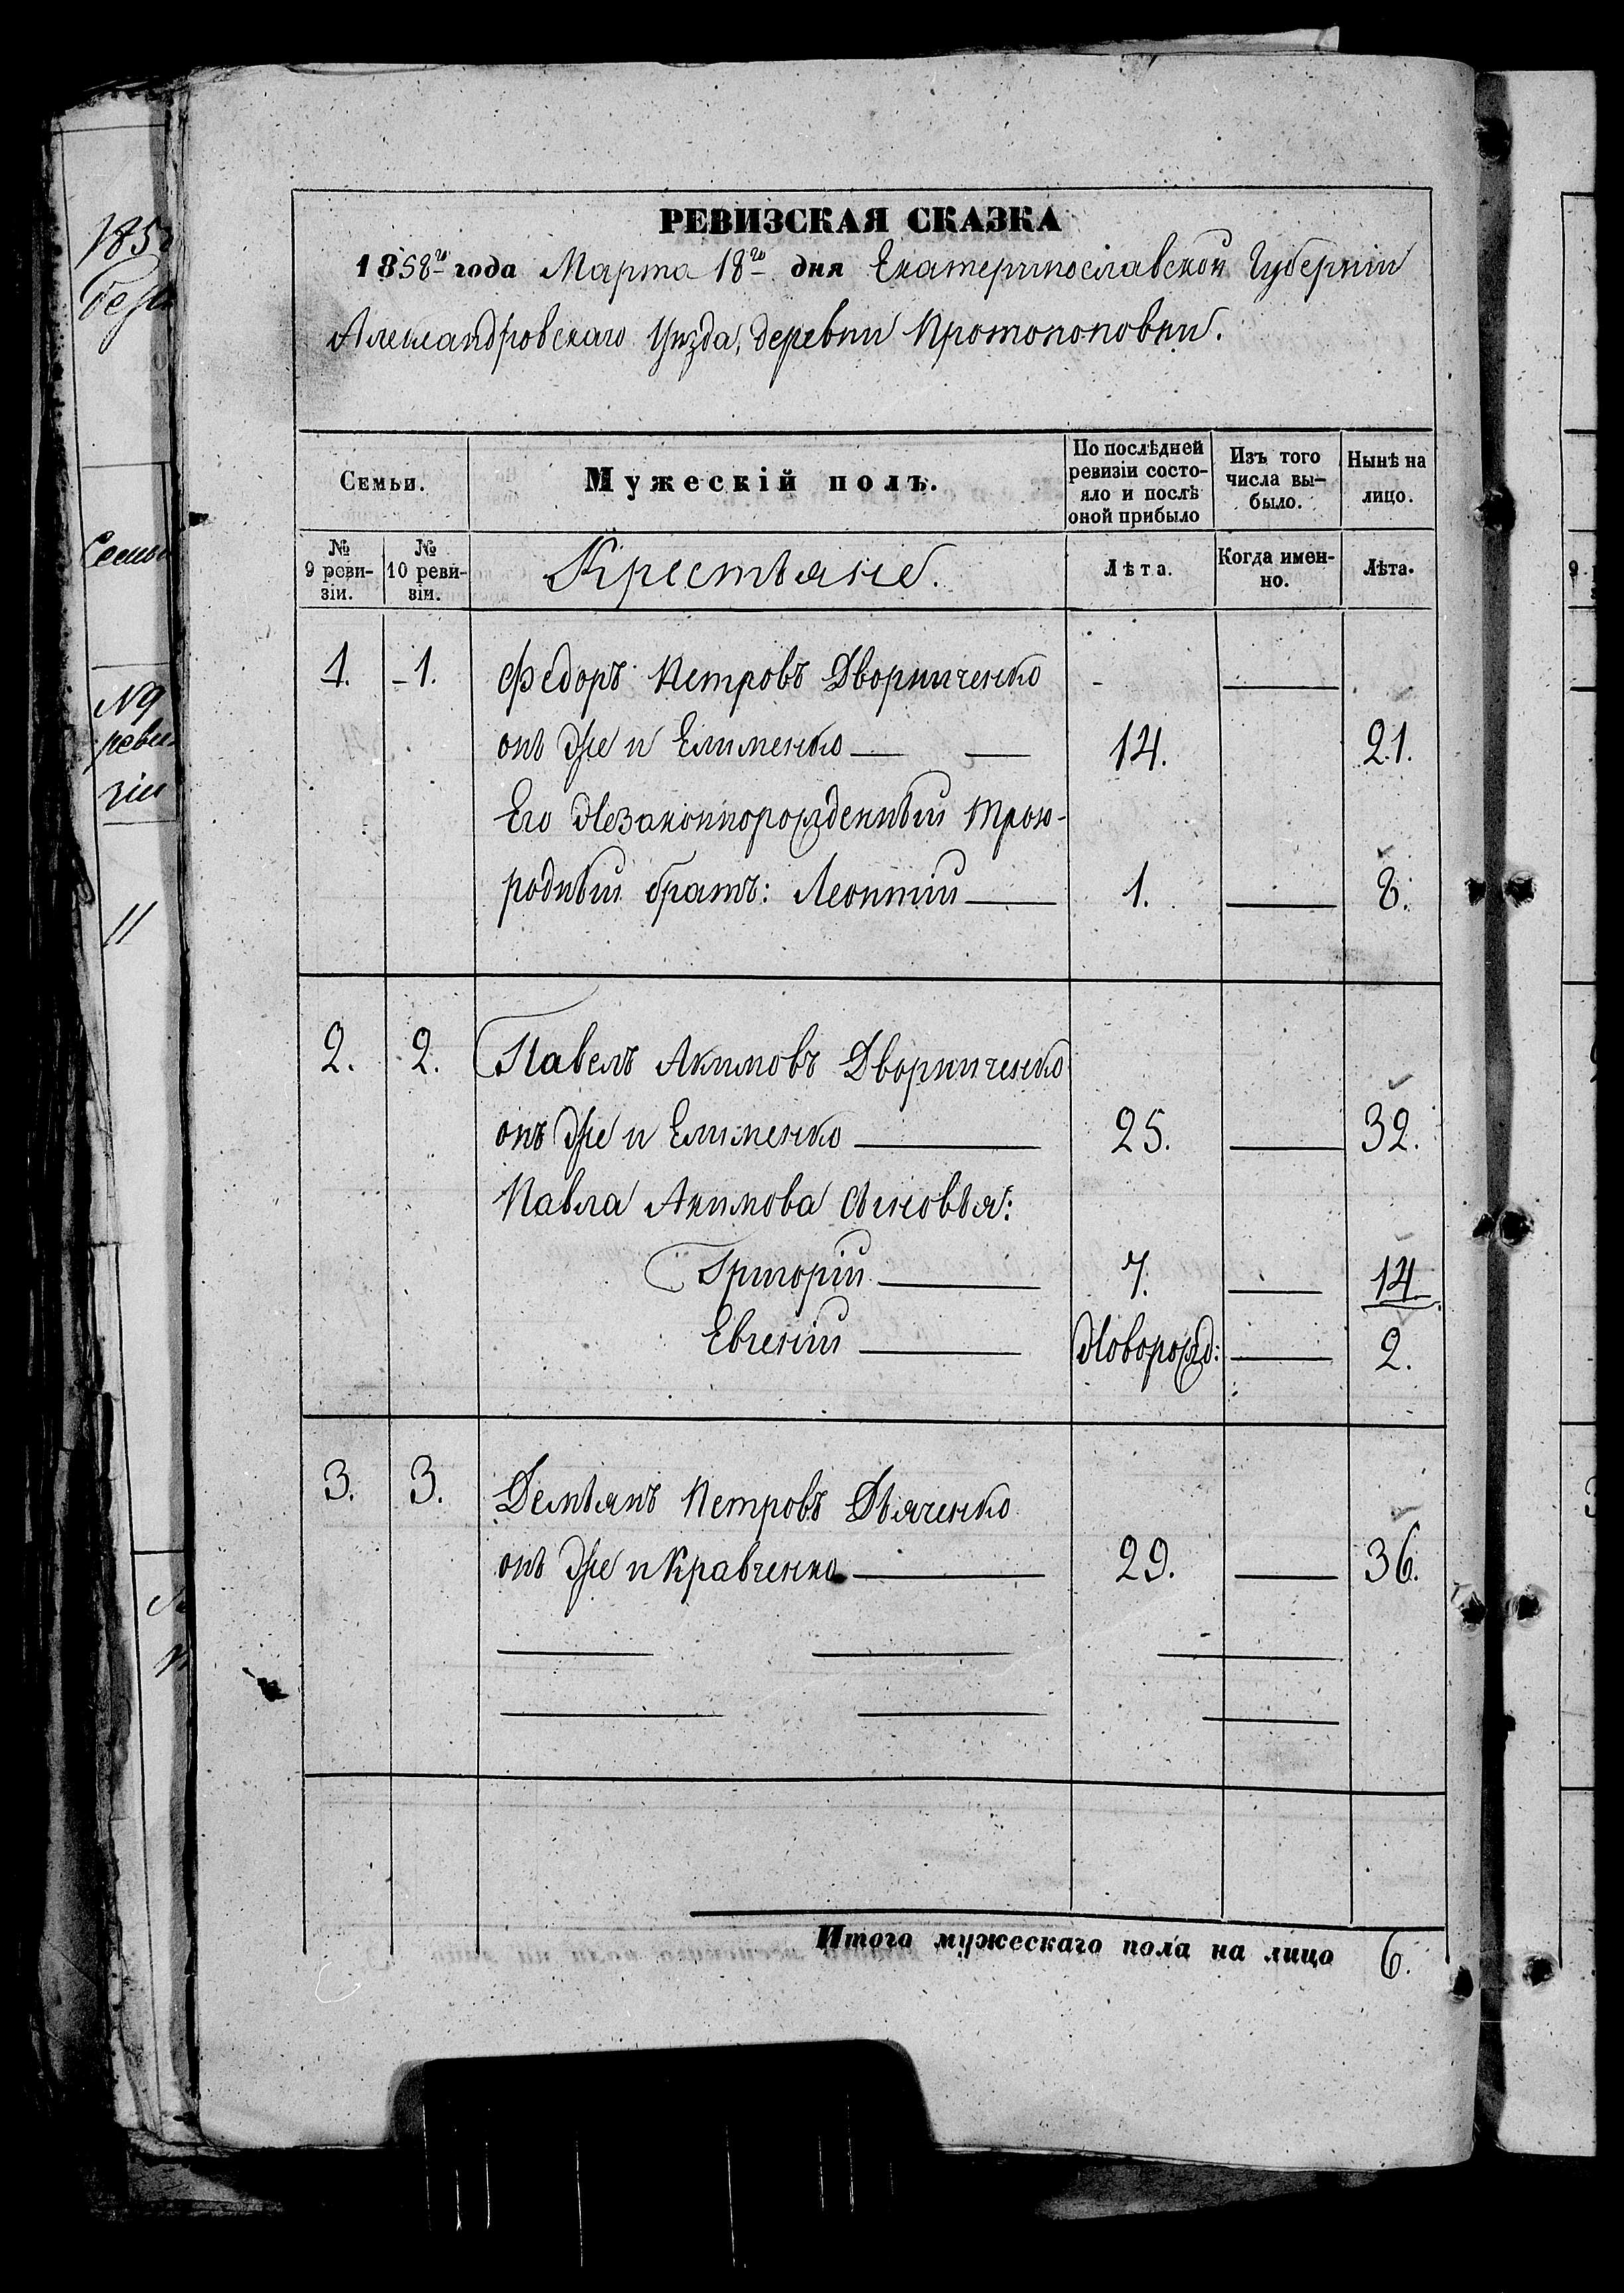 РЕВИЗСКАЯ СКАЗКА
1858го года Марта 18го дня Екатеринославской Губерніи
Александровскаго Уѣзда, деревни Протопоповки.
Семьи.
Мужескій полъ.
По послѣдней
ревизіи состо-
яло и послѣ
оной прибыло
Изъ того
числа вы-
было.
Нынѣ на
лицо.
№
9 реви-
зіи.
№
10 реви-
зіи.
Крестьяне.
Лѣта.
Когда имен-
но.
Лѣта.
1. 1. Федоръ Петровъ Дворниченко
онъ же и Елименко 14. 21.
Его Незаконнорожденный трою-
родный братъ: Леонтій 1. 8.
2. 2. Павелъ Акимовъ Дворниченко
онъ же и Елименко 25. 32.
Павла Акимова сыновья:
Григорій 7. 14.
Евгеній Новорожд: 2.
3. 3. Демьянъ Петровъ Дьяченко
онъ же и Кравченко 29. 36.
Итого мужескаго пола на лицо 6.
185
Семьи
№9
реви-
зіи
11